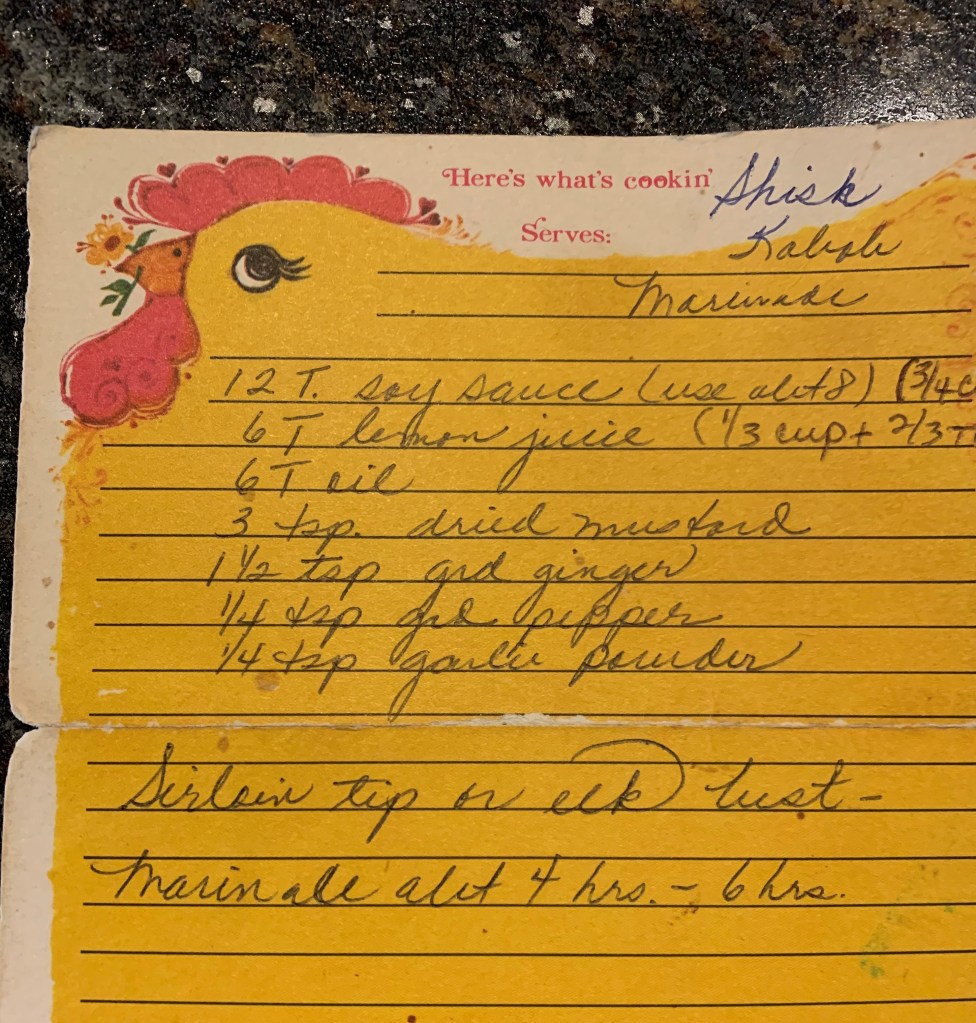 Here's what's cookin' Shisk
Serves: Kabob
Marinade
12 T. soy sauce (use abt 8) (3/4 c
6 T lemon juice (1/3 cup + 2/3 T
6 T oil
3 tsp. dried mustard
1 1/2 tsp grd ginger
1/4 tsp grd pepper
1/4 tsp garlic powder
Sirloin tip or elk best -
Marinate abt 4 hrs. - 6 hrs.